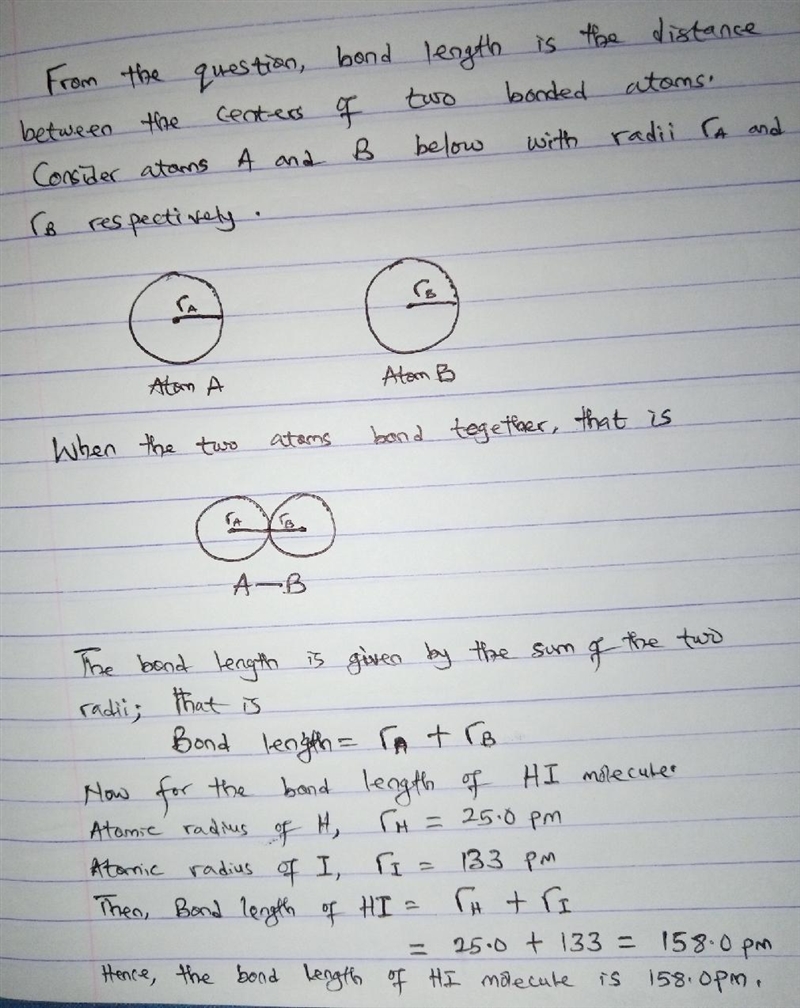 From the question, bond length is the distance
between the centers of two bonded atoms.
Consider atoms A and B below with radii rA and
rB respectively.
rA
rB
Atom A
Atom B
When the two atoms bond tegether, that is
rA rB
A—B
The bond length is given by the sum of the two
radii; that is
Bond length = rA + rB
Now for the bond length of HI molecule.
Atomic radius of H, rH = 25.0 pm
Atomic radius of I, rI = 133 pm
Then, Bond length of HI = rH + rI
= 25.0 + 133 = 158.0 pm
Hence, the bond length of HI molecule is 158.0pm.